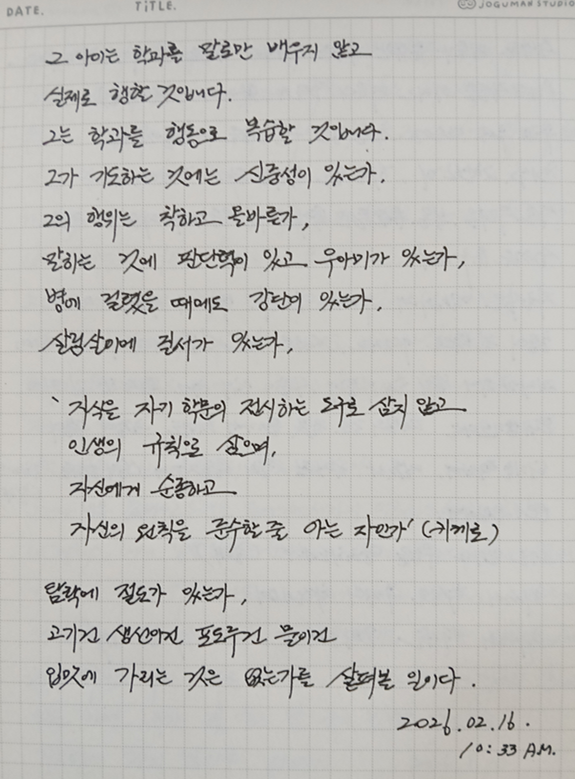 DATE. TITLE. JOGUMAN STUDIO
그 아이는 학과를 말로만 배우지 않고
실제로 행할 것입니다.
그는 학과를 행동으로 복습할 것입니다.
그가 기도하는 것에는 신중성이 있는가,
그의 행위는 착하고 올바른가,
말하는 것에 판단력이 있고 우아미가 있는가,
병에 걸렸을 때에도 강단이 있는가,
살림살이에 질서가 있는가,
‘ 지식을 자기 학문의 전시하는 도구로 삼지 않고
인생의 규칙으로 삼으며,
자신에게 순종하고
자신의 원칙을 준수할 줄 아는 자인가’ (-키케로)
탐락에 절도가 있는가,
고기건 생선이건 포도주건 물이건
입맛에 가리는 것은 없는가를 살펴볼 일이다.
2026.02.16.
10:33 A.M.